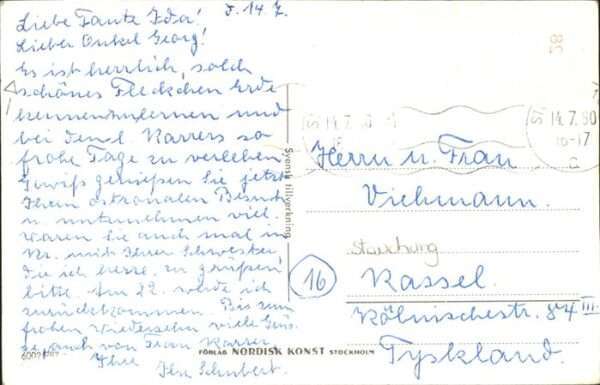 d. 14. 7.
Liebe Tante Ida!
Lieber Onkel Georg!
Es ist herrlich, solch
schönes Fleckchen Erde
kennenzulernen und
bei den l. Karrers so
frohe Tage zu verleben.
Gewiß genießen Sie jetzt
Ihren Besuch
u. unternehmen viel.
Waren Sie auch mal in
mit Ihrer Schwester
die ich herzl. zu grüßen
bitte. Am 22. werde ich
zurückkommen. Bis zum
frohen Wiedersehn viele Grüs-
se auch von Frau Karrer
Ihre
Ilse Schubert.
6007
Svensk tillverkning
FÖRLAG NORDISK KONST STOCKHOLM
14.7.60
16-17
Herrn u. Frau
Viehmann.
16
Kassel.
Kölnischestr. 84 III
Tyskland.